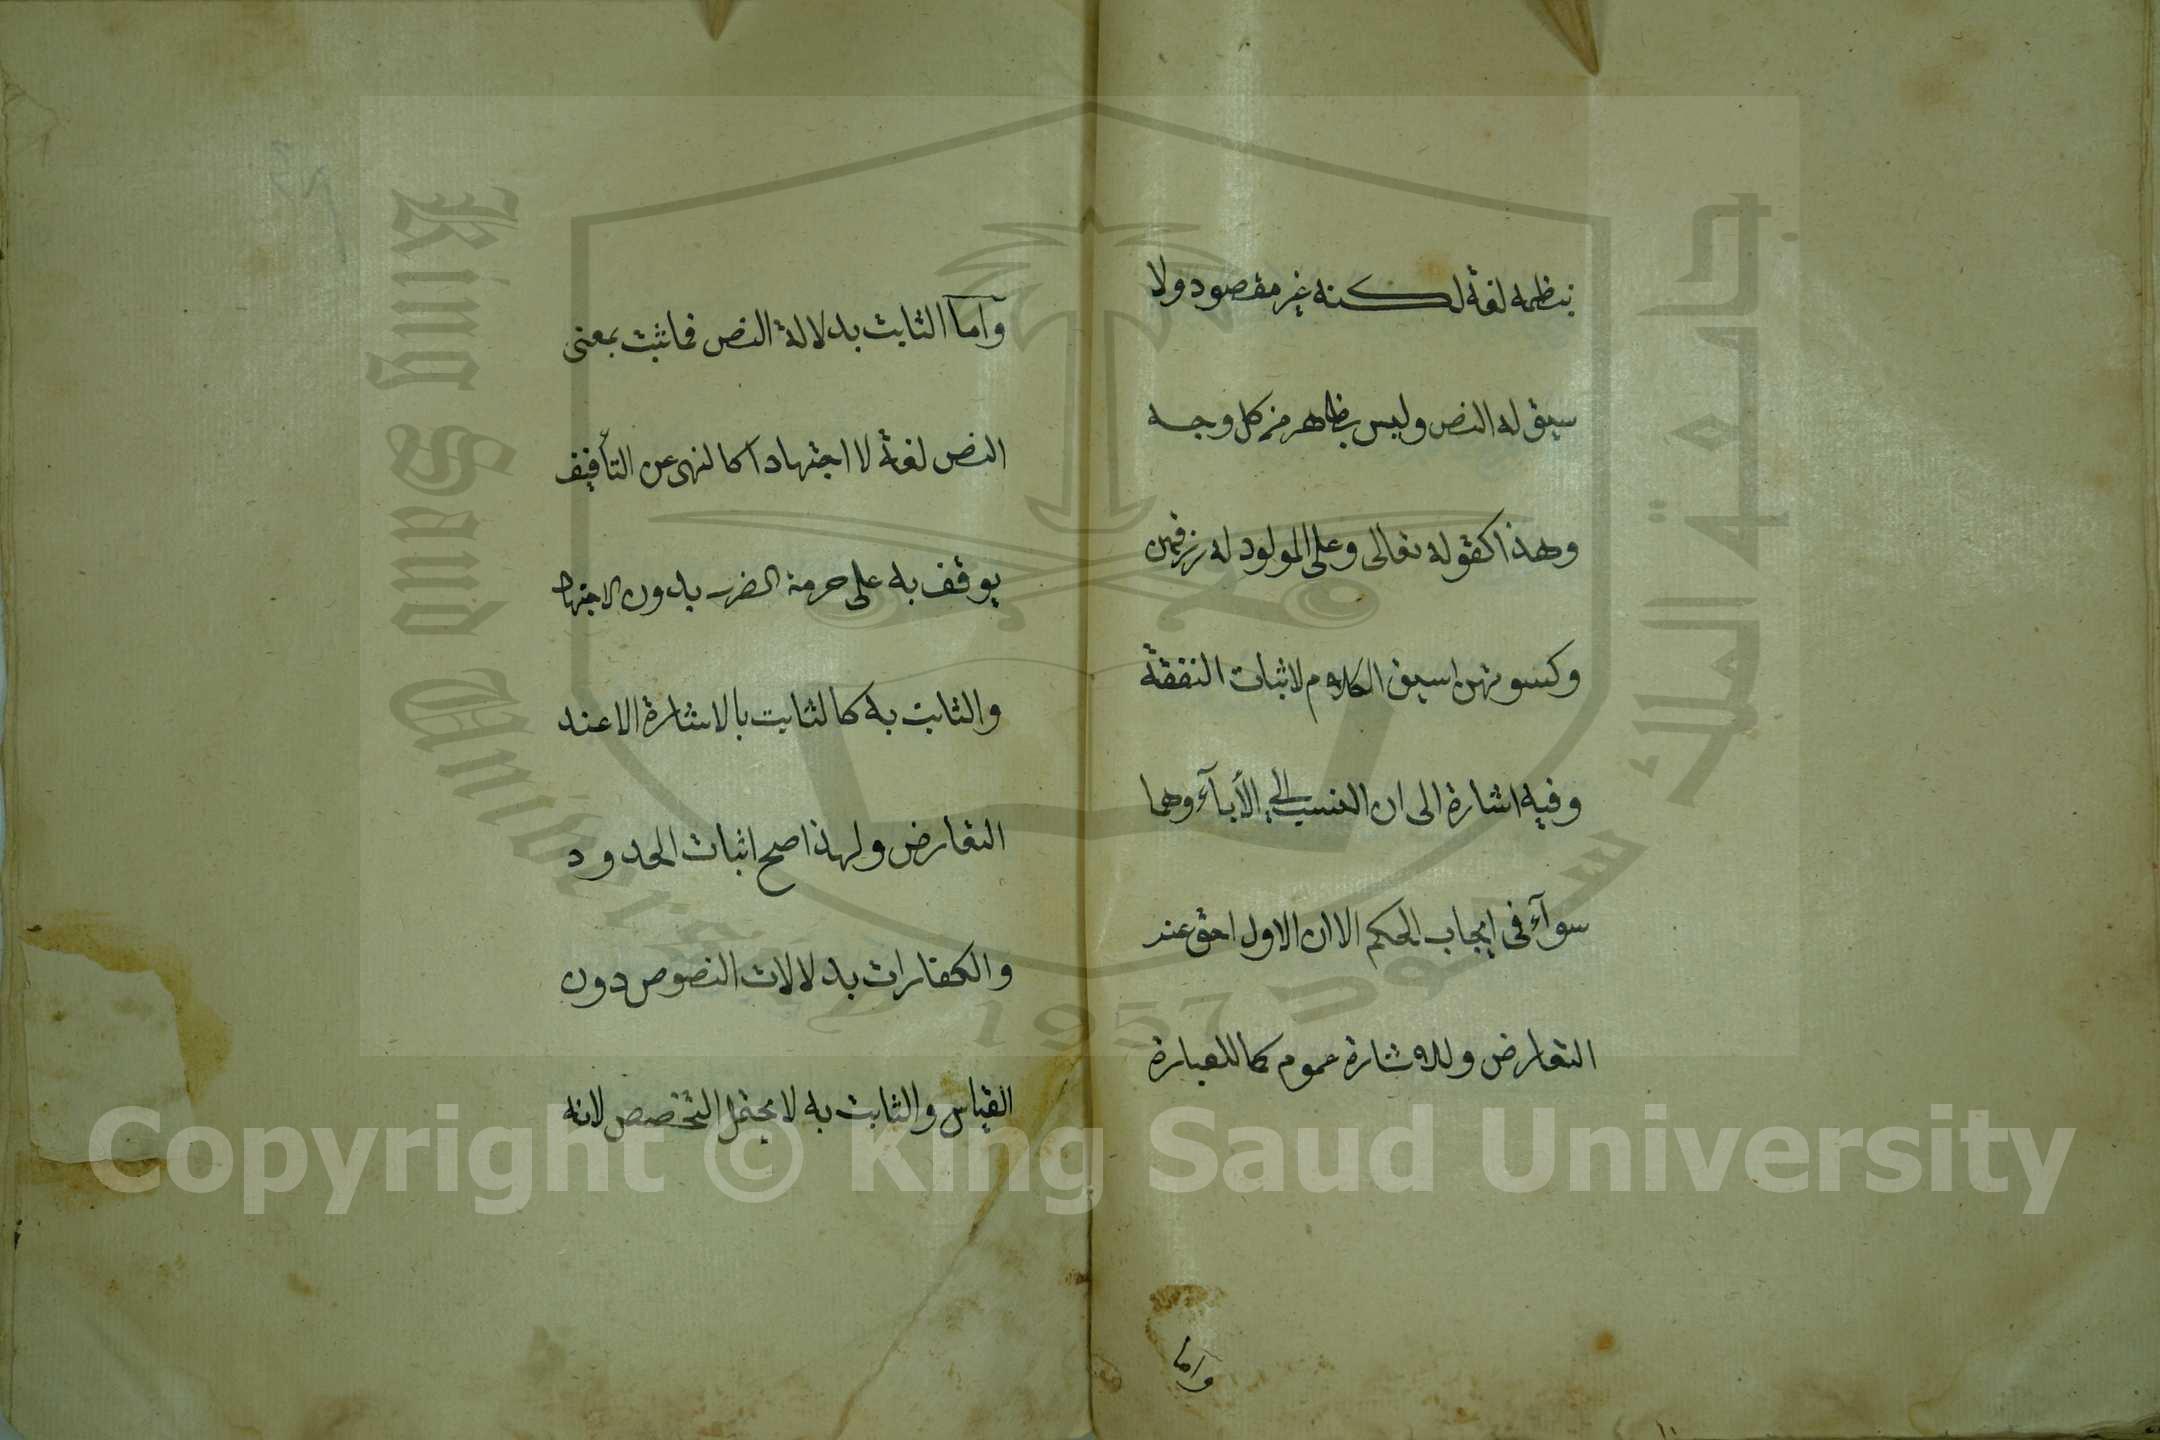 بنظمه لغة لكنه غير مقصود ولا
سيق له النص وليس بظاهر من كل وجه
وهذا كقوله تعالى وعلى المولود له رزقهن
وكسوتهن سيق الكلام لاثبات النفقة
وفيه اشارة الى ان النسب الى الأبآء وهما
سوآء فى ايجاب الحكم الا ان الاول احق عند
التعارض وللاشارة عموم كما للعبارة
واما
وآما الثابت بدلالة النص فما ثبت بمعنى
النص لغة لا اجتهادا كالنهى عن التأفيف
يوقف به على حرمة الضرب بدون الاجتهاد
والثابت به كالثابت بالاشارة الا عند
التعارض ولهذا صح اثبات الحدود
والكفارات بدلالات النصوص دون
القياس والثابت به لا يحتمل التخصص لانه
King Saud University
جامعة الملك سعود
1957
Copyright © King Saud University